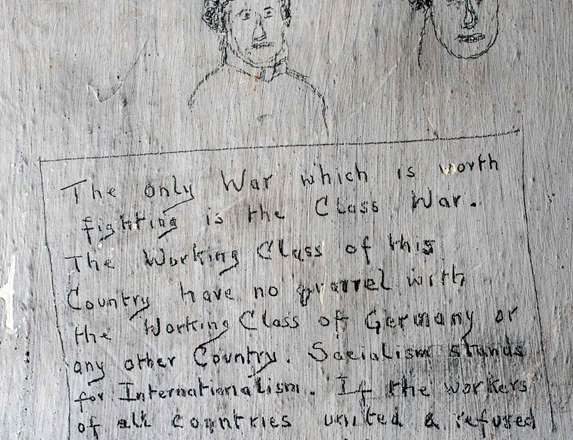 The only War which is worth
fighting is the Class War.
The Working Class of this
Country have no quarrel with
the Working Class of Germany or
any other Country. Socialism stands
for Internationalism. If the workers
of all countries united & refused